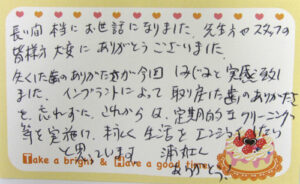 長い間本当にお世話になりました。先生方やスタッフの
皆様方大変にありがとうございました。
失くした歯のありがたさが今回しみじみと実感致し
ました。インプラントによって取り戻した歯のありがたさ
を忘れずに、これからは、定期的なクリーニング
等を実施け、末永く生活をエンジョイしたら
と思っています
ありがとう。
Take a bright & Have a good time!